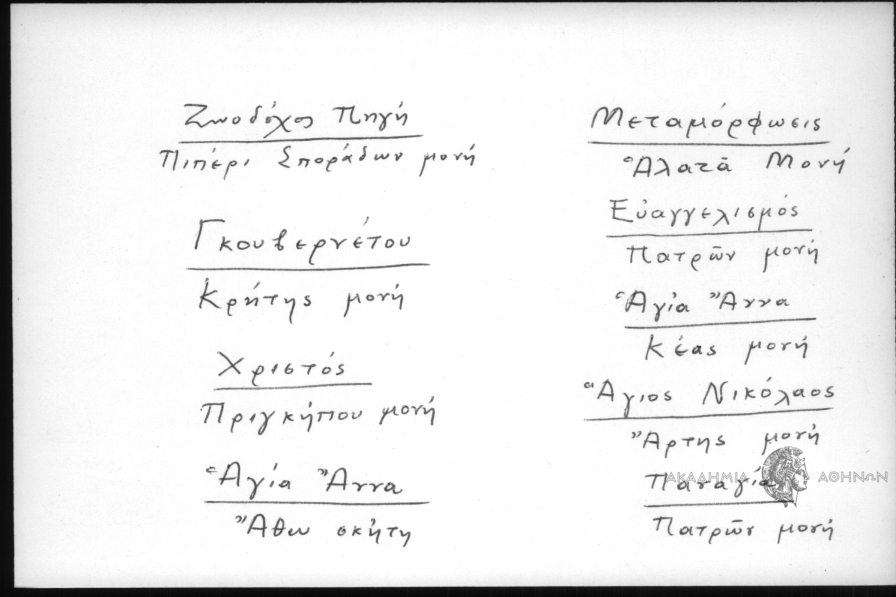 Ζωοδόχος Πηγή
Πιπέρι Σποράδων μονή
Γκουβερνέτου
Κρήτης μονή
Χριστός
Πριγκήπου μονή
Ἁγία Ἄννα
Ἄθω σκήτη
Μεταμόρφωσις
Ἀλατᾶ Μονή
Εὐαγγελισμός
Πατρῶν μονή
Ἁγία Ἄννα
Κέας μονή
Ἅγιος Νικόλαος
Ἄρτης μονή
Παναγία
Πατρῶν μονή
ΑΚΑΔΗΜΙΑ ΑΘΗΝΩΝ